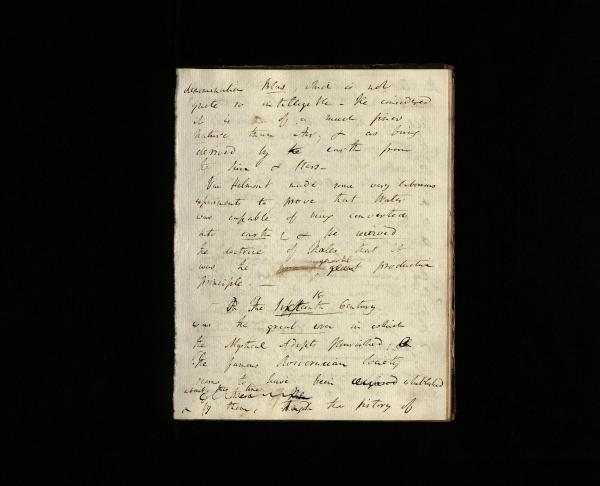 denomination Blas, which is not
quite so intelligible - He considered
it is of a much finer
nature than Air, & as being
derived by the earth from
the Sun & Stars -
Van Helmont made some very laborious
experiments to prove that Water
was capable of being converted
into earth & he revived
the doctrine of Thales that it
was the great productive
principle. -
- In the 16 Century
was the great era in which
the Mystical Adepts flourished,
The famous Rosicrucian Society
seems to have been established
about this time
by them, the history of